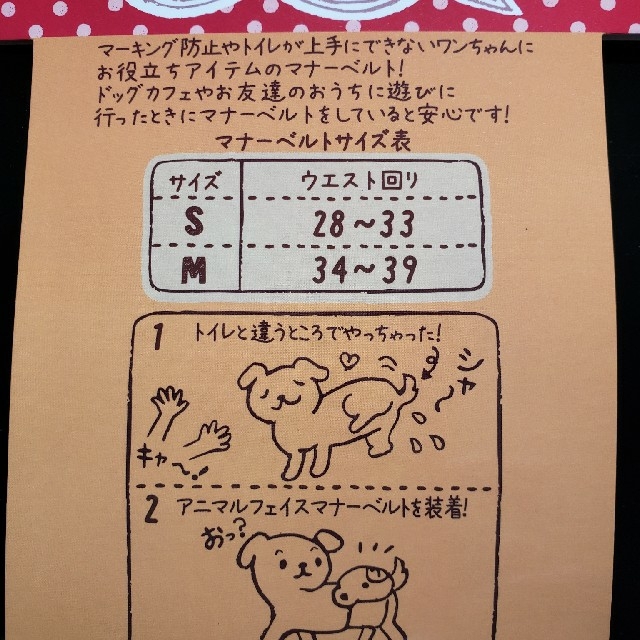 マーキング防止やトイレが上手にできないワンちゃんに
お役立ちアイテムのマナーベルト!
ドッグカフェやお友達のおうちに遊びに
行ったときにマナーベルトをしていると安心です!
マナーベルトサイズ表
サイズ ウエスト回り
S 28～33
M 34～39
1 トイレと違うところでやっちゃった!
シャ～
キャ～!
2 アニマルフェイスマナーベルトを装着!
おっ?